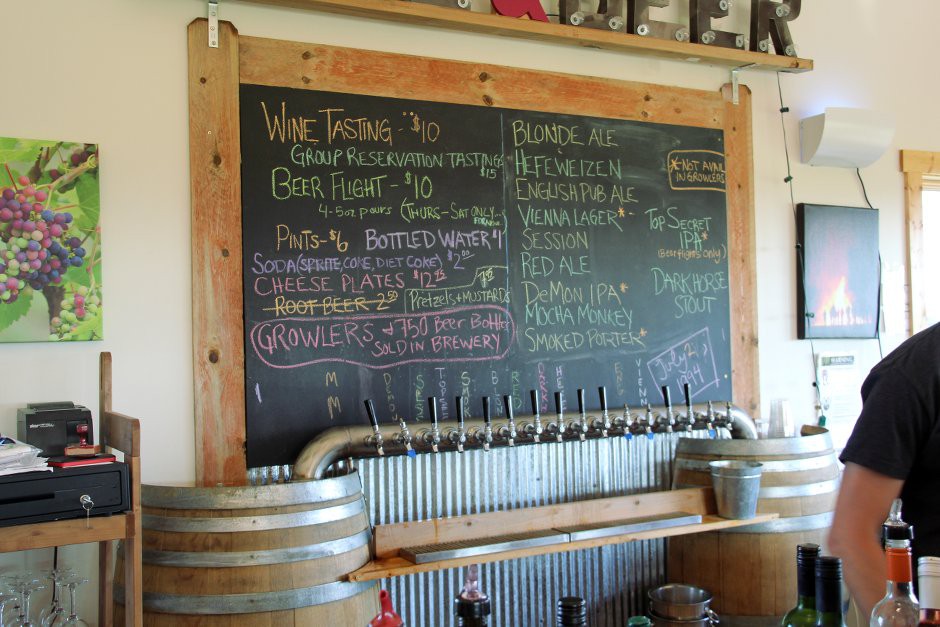 WINE TASTING - $10
GROUP RESERVATION TASTING
$15
BEER FLIGHT - $10
4-5oz pours (THURS-SAT ONLY...
PINTS - $6
BOTTLED WATER $1
SODA (SPRITE, COKE, DIET COKE) $2.00
CHEESE PLATES $12.75
ROOT BEER 2.50
PRETZELS + MUSTARDS
GROWLERS & 750 BEER BOTTLES
SOLD IN BREWERY
BLONDE ALE
HEFEWEIZEN
ENGLISH PUB ALE
VIENNA LAGER*
SESSION
RED ALE
DEMON IPA*
MOCHA MONKEY
SMOKED PORTER*
*NOT AVAIL
IN GROWLERS
TOP SECRET
IPA*
(Beer flights only)
DARK HORSE
STOUT
July 2